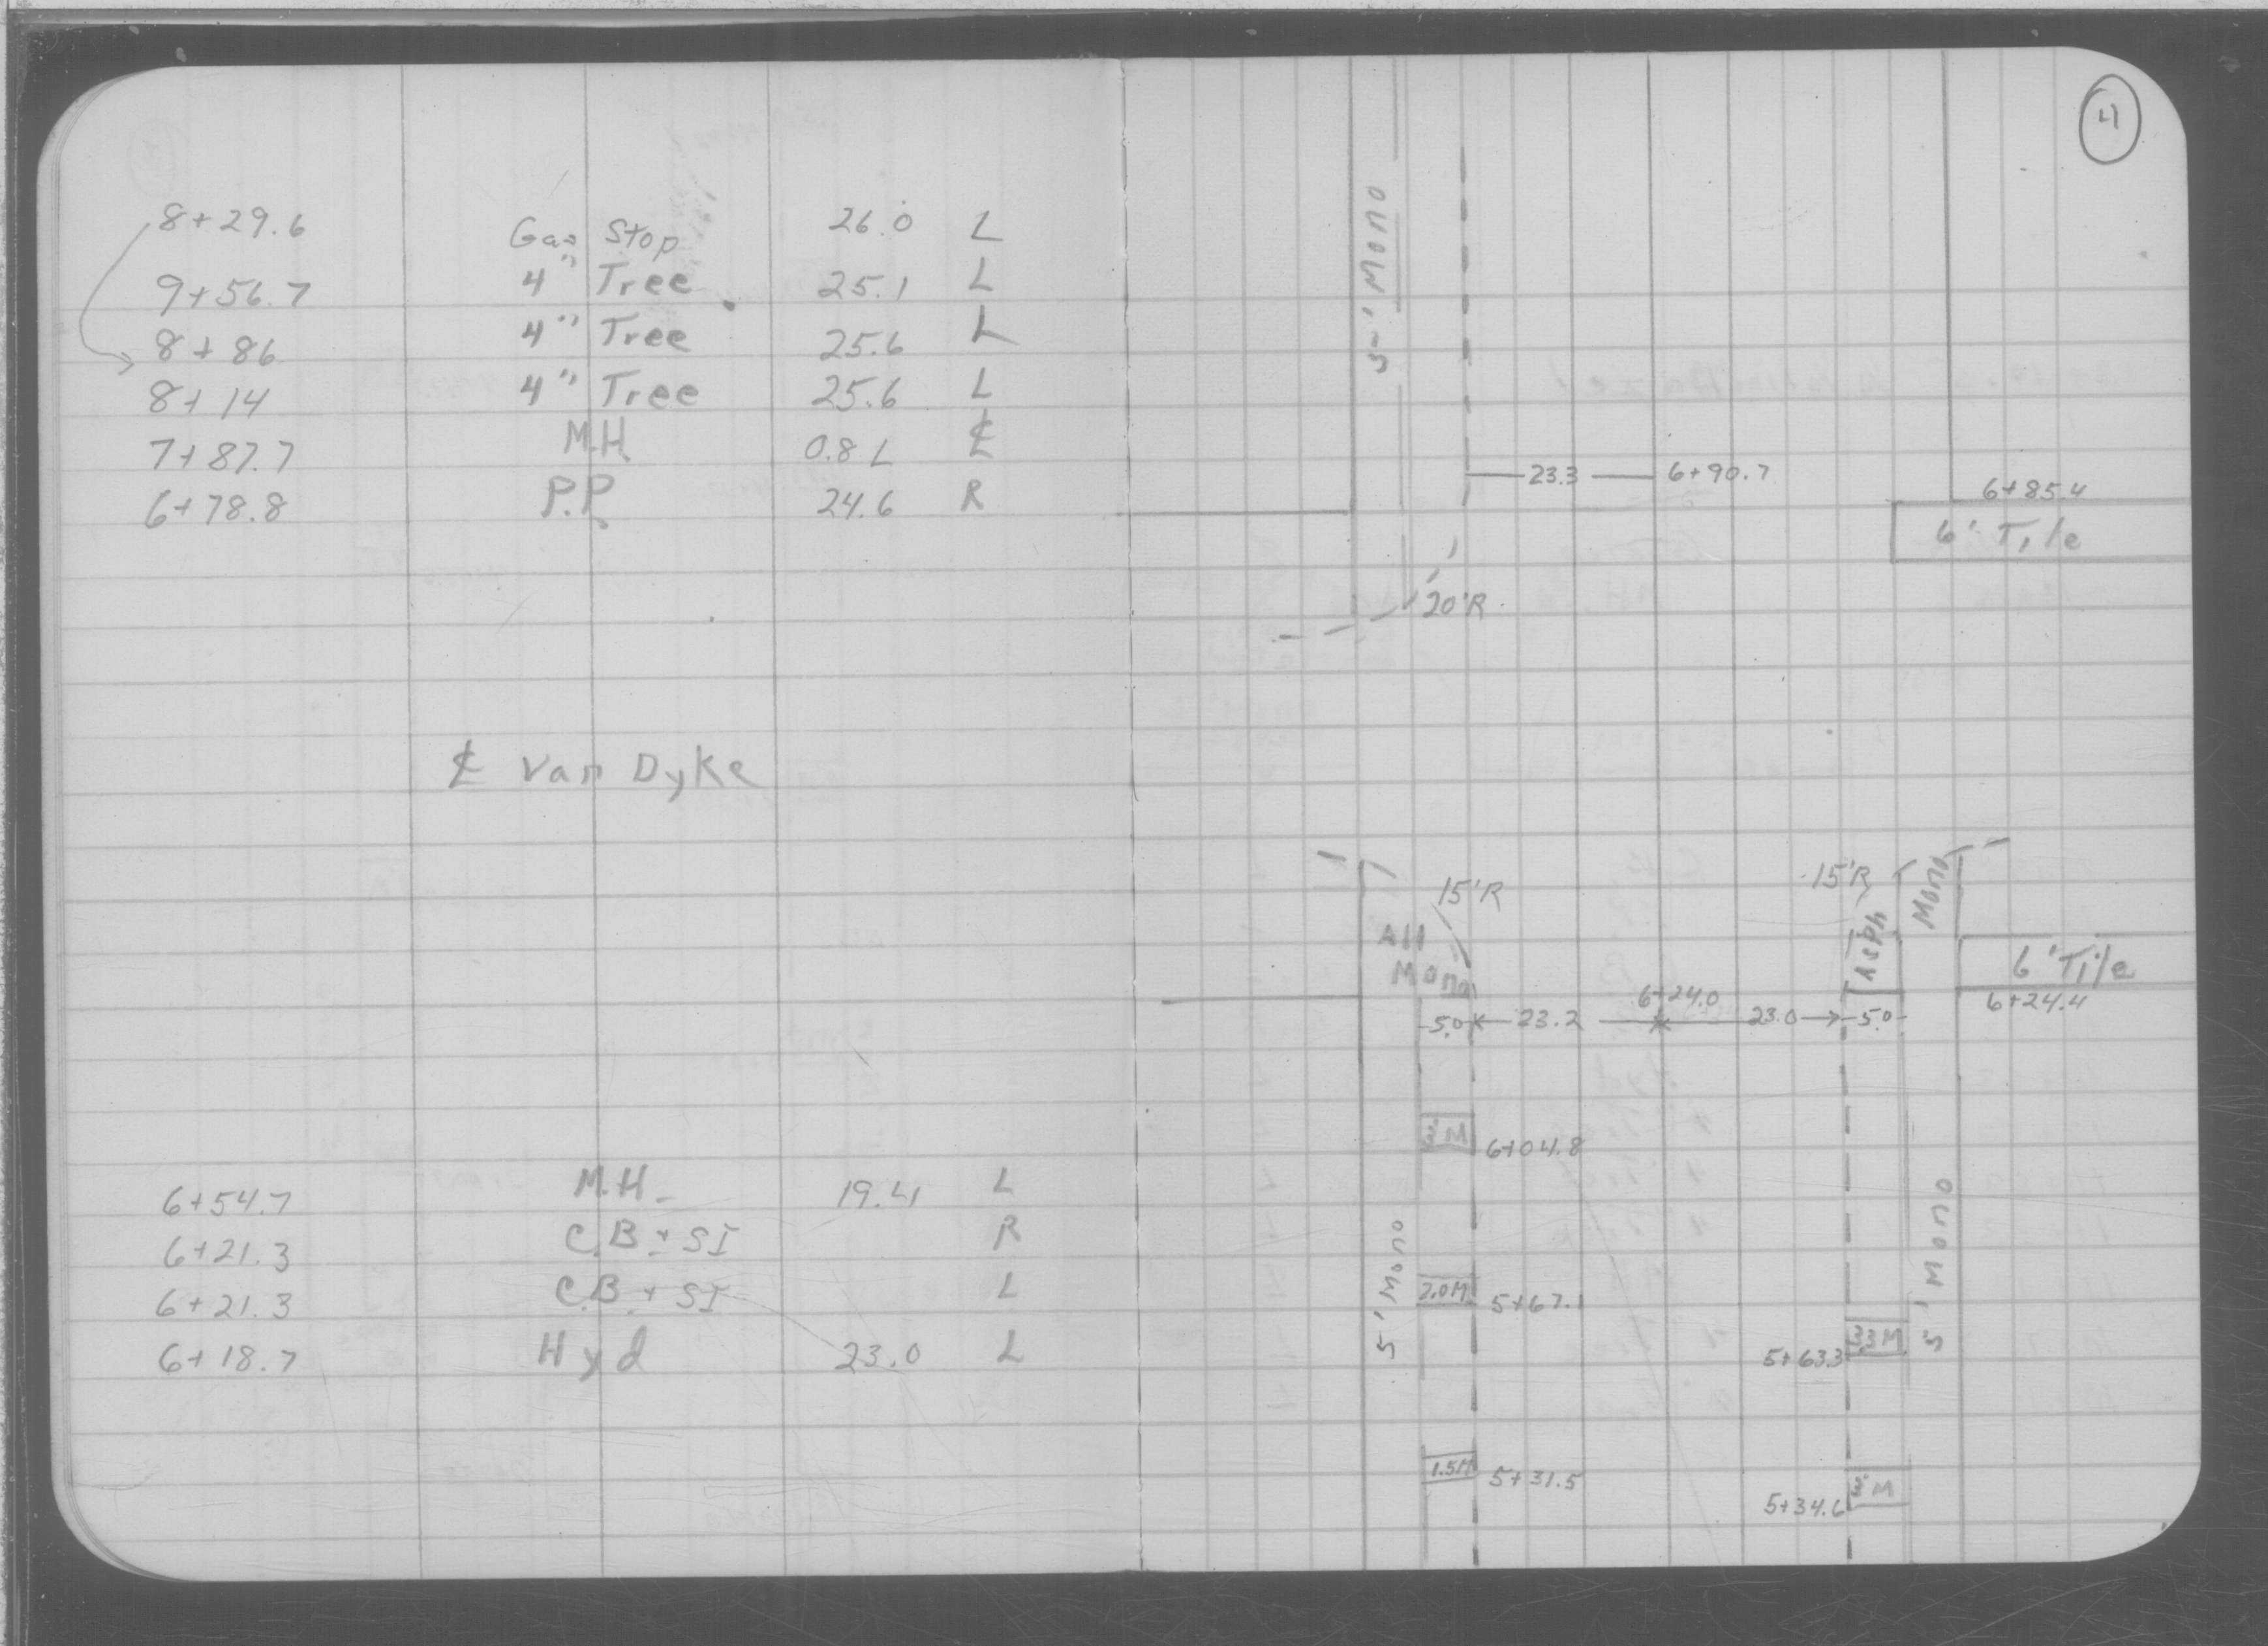 4
8+29.6 Gas Stop 26.0 L
9+56.7 4" Tree 25.1 L
8+86 4" Tree 25.6 L
8+14 4" Tree 25.6 L
7+87.7 M.H. 0.8 L ℄
6+78.8 P.P. 24.6 R
℄ Van Dyke
6+54.7 M.H. 19.4 L
6+21.3 C.B. + SI R
6+21.3 C.B. + SI L
6+18.7 Hyd 23.0 L
5' Mono
23.3 6+90.7
6+85.4
6' Tile
20'R
15'R 15'R
All Mono
Asph
Mono
6' Tile
6+24.0
6+24.4
5.0 23.2 23.0 5.0
3' M 6+04.8
5' Mono
5' Mono
2.0M 5+67.1
5+63.3 3.3M
1.5M 5+31.5
5+34.6 3' M